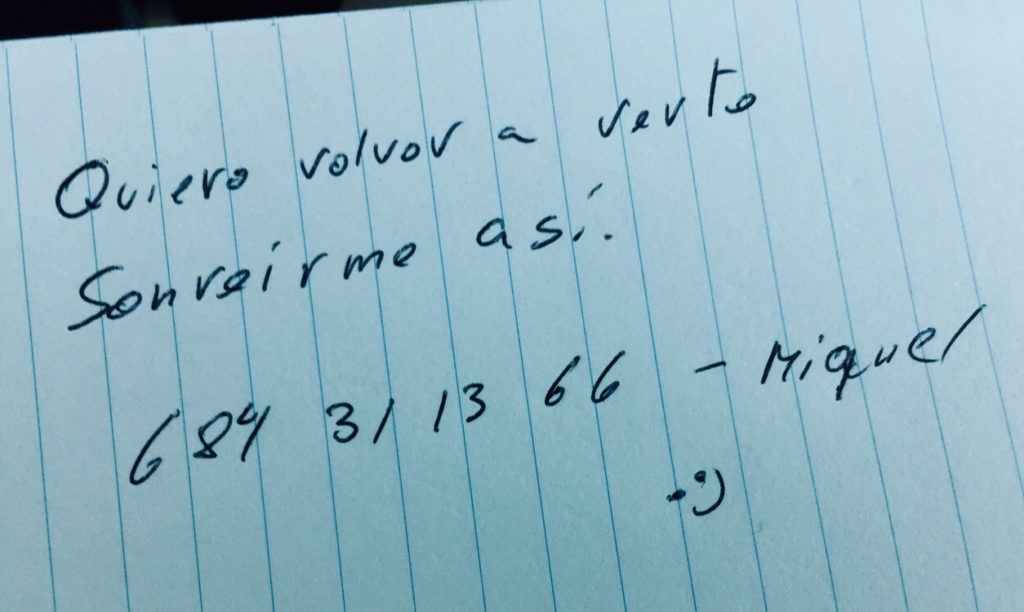 Quiero volver a verte
Sonreirme así.
684 31 13 66 - Miguel
:)